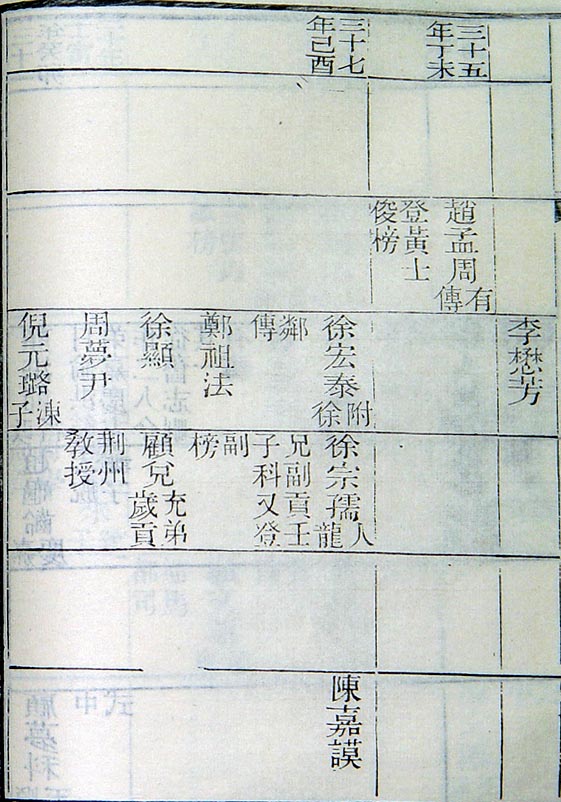 李懋芳
三十五
年丁未
趙孟周
有傳
登黃士
俊榜
三十七
年己酉
徐宏泰
附徐
鄰傳
鄭祖法
徐顯
周夢尹
倪元璐
涷子
徐宗孺
人龍
兄副貢壬
子科又登
副榜
顧兌
充弟歲貢
荆州
教授
陳嘉謨